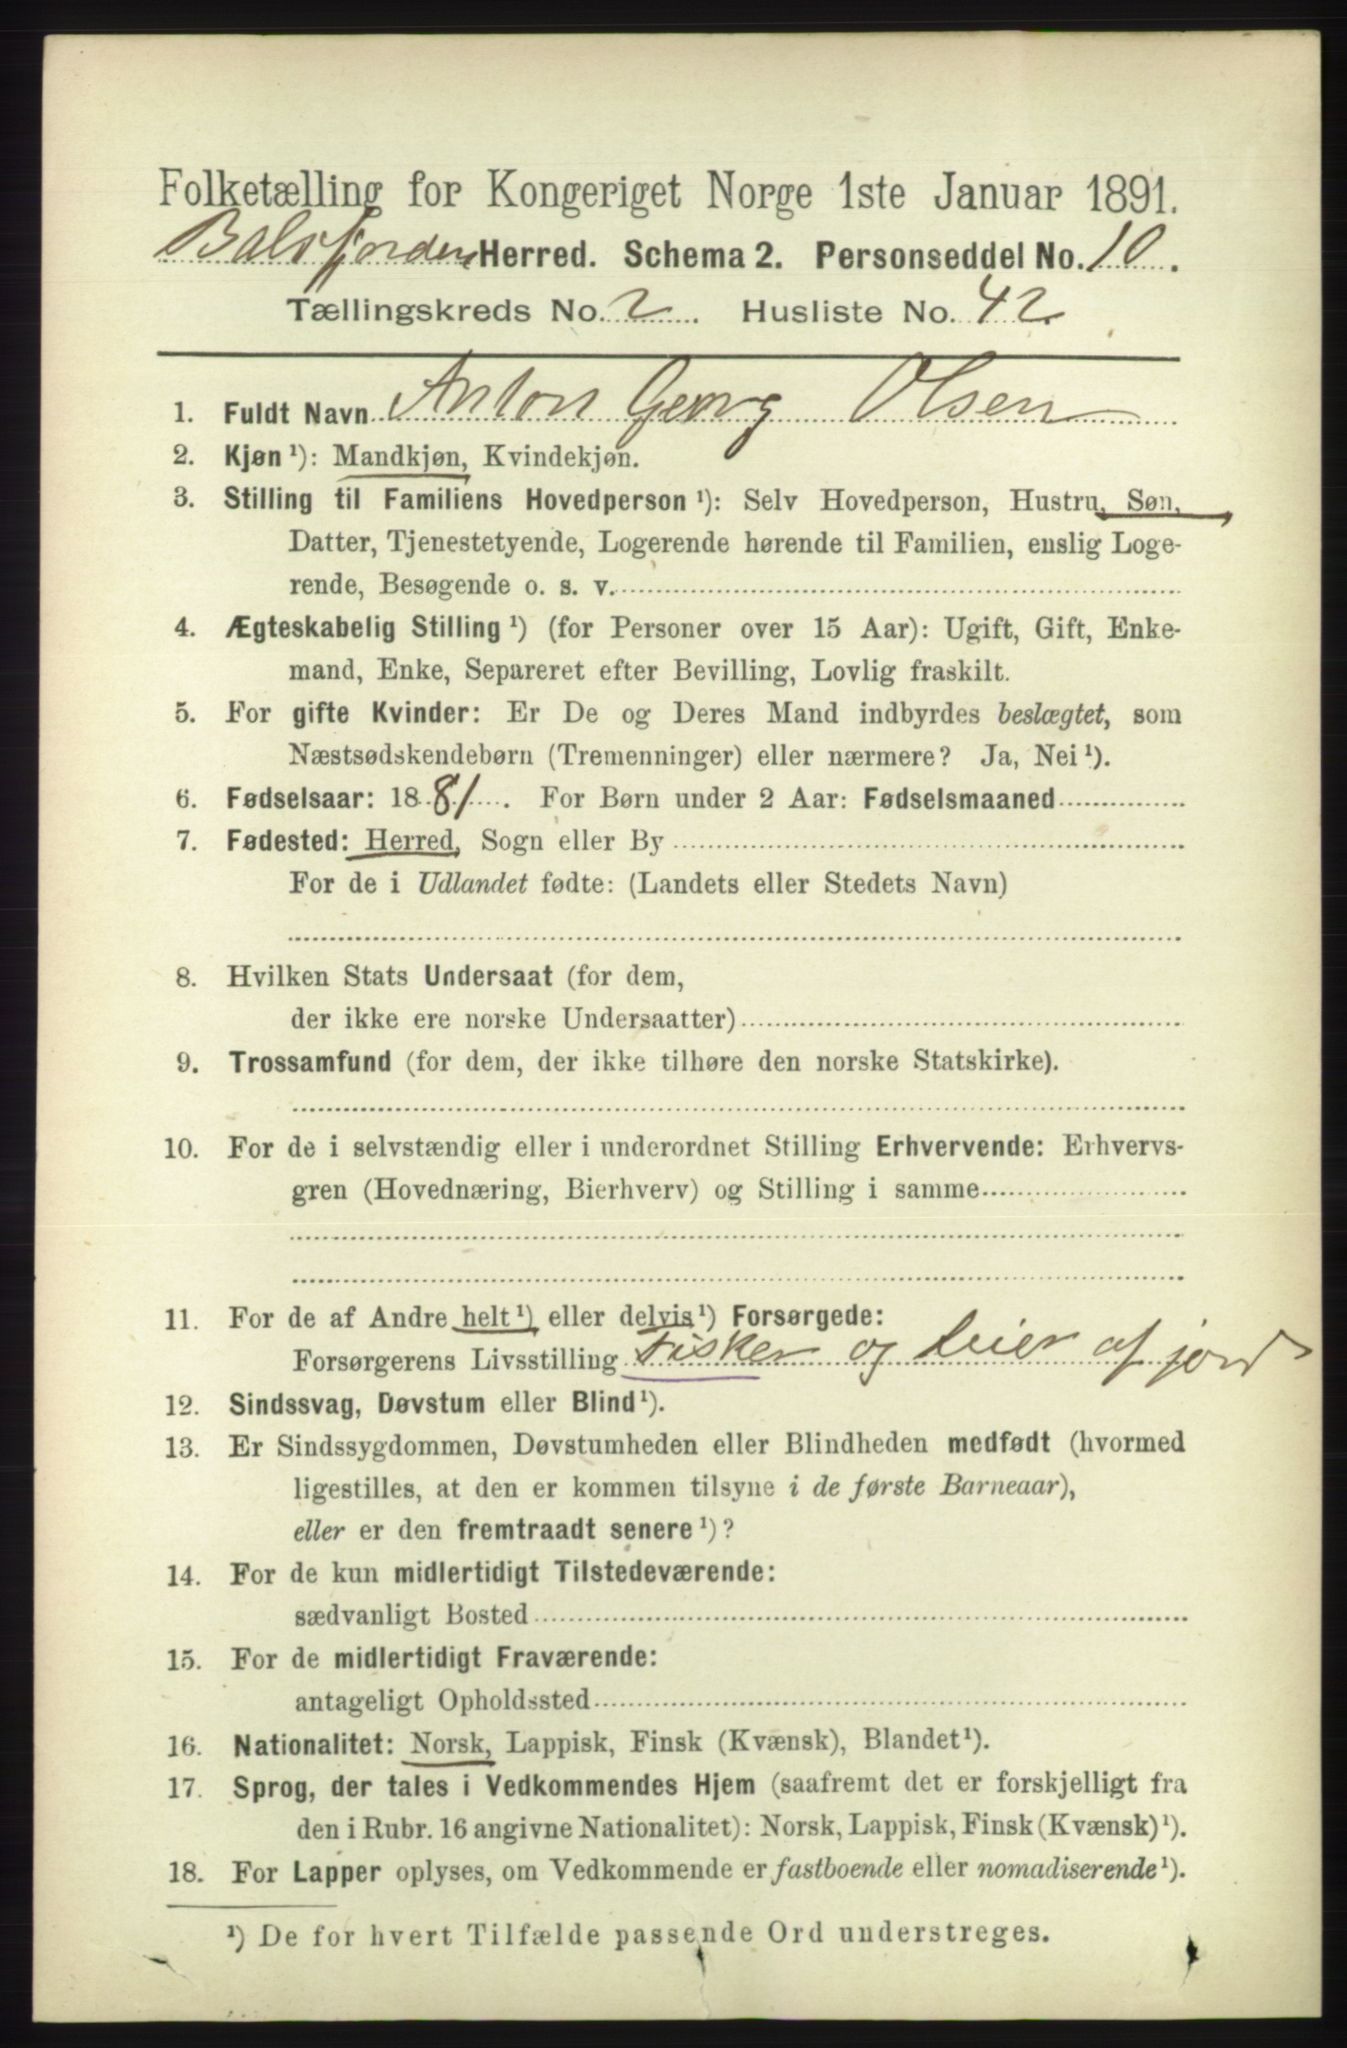 Folketælling for Kongeriget Norge 1ste Januar 1891.
Balsfjorden Herred. Schema 2. Personseddel No. 10.
Tællingskreds No. 2. Husliste No. 42.
1. Fuldt Navn Anton Georg Olsen
2. Kjøn ¹): Mandkjøn, Kvindekjøn.
3. Stilling til Familiens Hovedperson ¹): Selv Hovedperson, Hustru, Søn,
Datter, Tjenestetyende, Logerende hørende til Familien, enslig Loge-
rende, Besøgende o. s. v.
4. Ægteskabelig Stilling ¹) (for Personer over 15 Aar): Ugift, Gift, Enke-
mand, Enke, Separeret efter Bevilling, Lovlig fraskilt.
5. For gifte Kvinder: Er De og Deres Mand indbyrdes beslægtet, som
Næstsødskendebørn (Tremenninger) eller nærmere? Ja, Nei ¹).
6. Fødselsaar: 1881. For Børn under 2 Aar: Fødselsmaaned
7. Fødested: Herred, Sogn eller By
For de i Udlandet fødte: (Landets eller Stedets Navn)
8. Hvilken Stats Undersaat (for dem,
der ikke ere norske Undersaatter)
9. Trossamfund (for dem, der ikke tilhøre den norske Statskirke).
10. For de i selvstændig eller i underordnet Stilling Erhvervende: Erhvervs-
gren (Hovednæring, Bierhverv) og Stilling i samme
11. For de af Andre helt ¹) eller delvis ¹) Forsørgede:
Forsørgerens Livsstilling Fisker og Leier af jord
12. Sindssvag, Døvstum eller Blind ¹).
13. Er Sindssygdommen, Døvstumheden eller Blindheden medfødt (hvormed
ligestilles, at den er kommen tilsyne i de første Barneaar),
eller er den fremtraadt senere ¹)?
14. For de kun midlertidigt Tilstedeværende:
sædvanligt Bosted
15. For de midlertidigt Fraværende:
antageligt Opholdssted
16. Nationalitet: Norsk, Lappisk, Finsk (Kvænsk), Blandet ¹).
17. Sprog, der tales i Vedkommendes Hjem (saafremt det er forskjelligt fra
den i Rubr. 16 angivne Nationalitet): Norsk, Lappisk, Finsk (Kvænsk) ¹).
18. For Lapper oplyses, om Vedkommende er fastboende eller nomadiserende ¹).
¹) De for hvert Tilfælde passende Ord understreges.